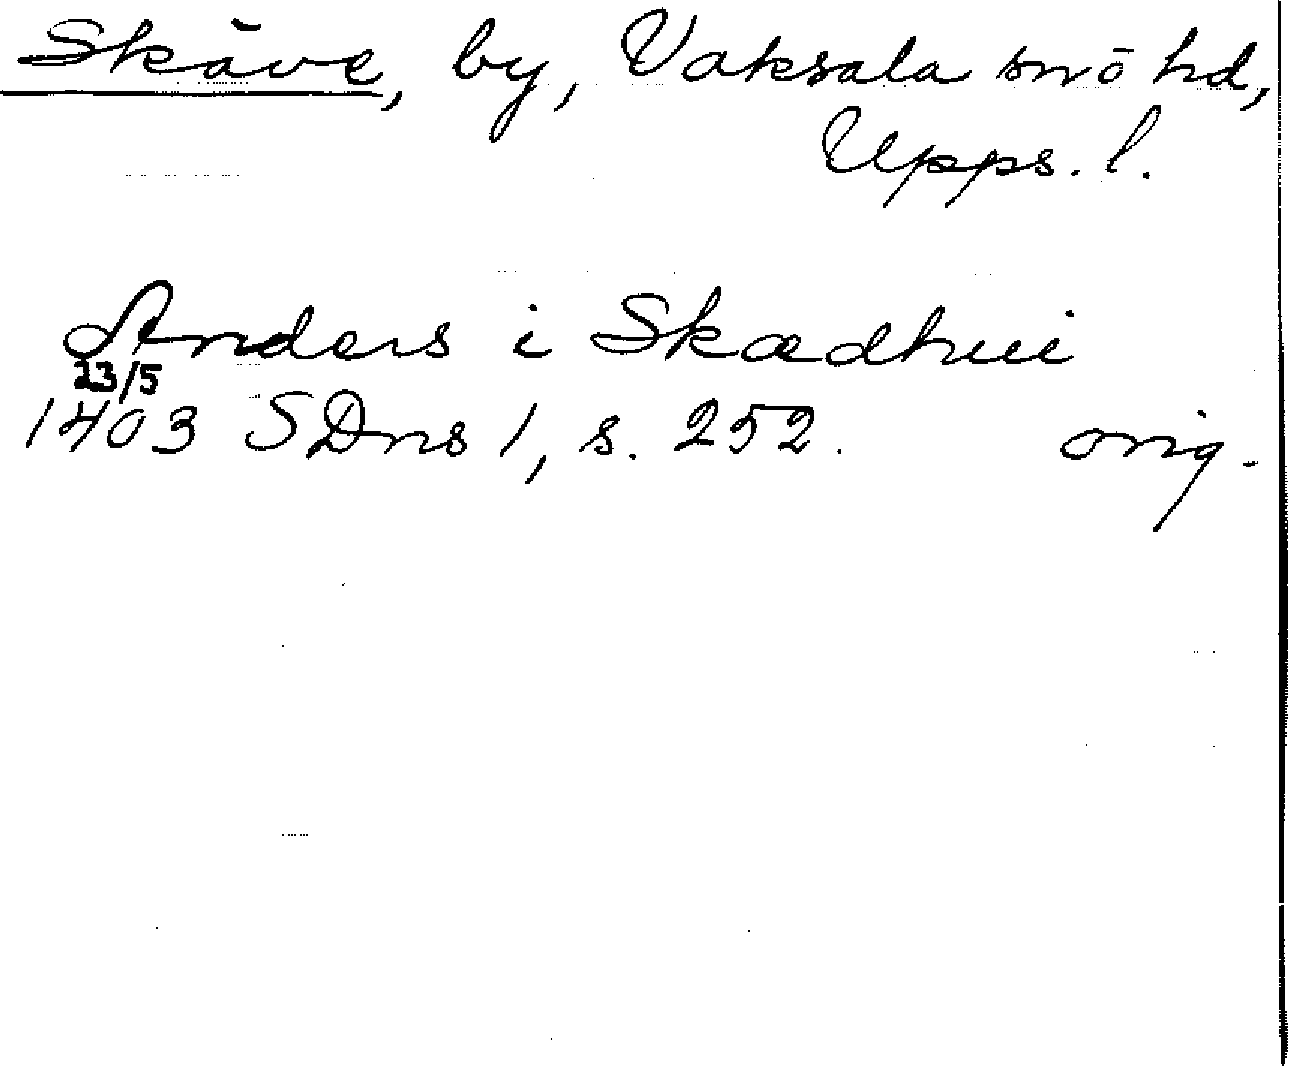 Skäve, by, Vaksala sn o hd,
Upps. l.
Anders i Skædhui
23/5
1403 SDns 1, s. 252. orig.